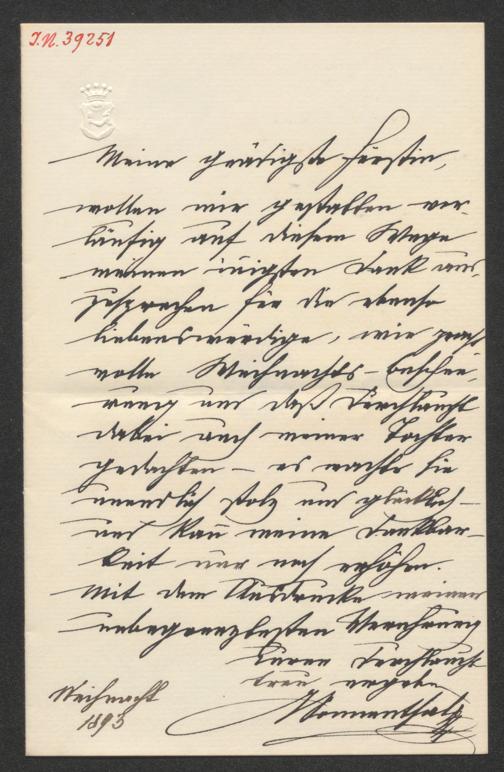 J.N. 39251
Meine gnädigste Fürstin,
wollen mir gestatten vor-
läufig auf diesem Wege
meinen innigsten Dank aus-
zusprechen für die ebenso
liebenswürdige, wie pracht-
volle Weihnachts-Beschee-
rung und daß Durchlaucht
dabei auch meiner Tochter
gedachten – es machte sie
unendlich stolz und glücklich –
und kan̄ meine Dankbar-
keit nur noch erhöhen.
Mit dem Ausdrucke meiner
unbegrenztesten Verehrung
Eurer Durchlaucht
treu ergeben
Sonnenthal
Weihnacht
1893